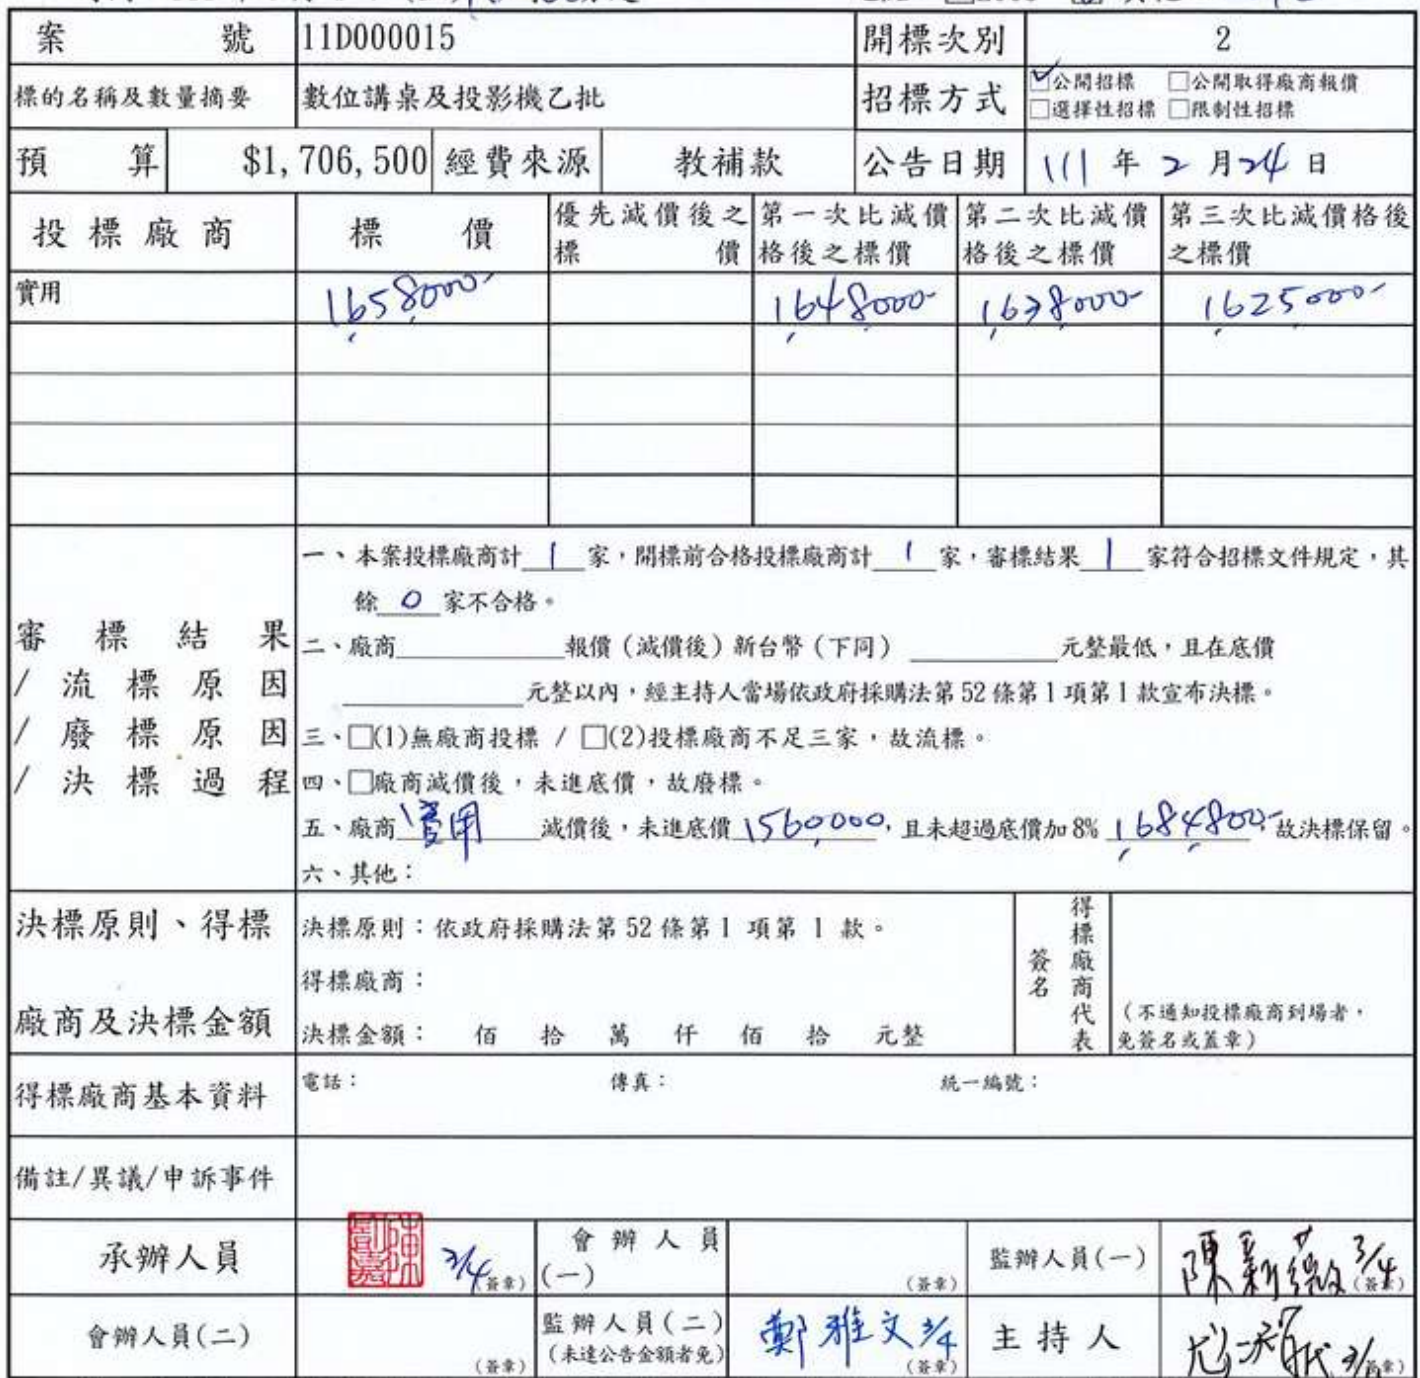 案 號 11D000015 開標次別 2
標的名稱及數量摘要 數位講桌及投影機乙批 招標方式 ☑公開招標 □公開取得廠商報價
□選擇性招標 □限制性招標
預 算 $1,706,500 經費來源 教補款 公告日期 111 年 2 月 24 日
投標廠商 標 價 優先減價後之標 價 第一次比減價格後之標價 第二次比減價格後之標價 第三次比減價格後之標價
實用 1,658,000- 1,648,000- 1,638,000- 1,625,000-
審標結果
/流標原因
/廢標原因
/決標過程
一、本案投標廠商計 1 家,開標前合格投標廠商計 1 家,審標結果 1 家符合招標文件規定,其
餘 0 家不合格。
二、廠商 報價(減價後)新台幣(下同) 元整最低,且在底價
元整以內,經主持人當場依政府採購法第52條第1項第1款宣布決標。
三、□(1)無廠商投標 / □(2)投標廠商不足三家,故流標。
四、□廠商減價後,未進底價,故廢標。
五、廠商 實用 減價後,未進底價 1,560,000,且未超過底價加8% 1,684,800-,故決標保留。
六、其他:
決標原則、得標
廠商及決標金額
決標原則:依政府採購法第52條第1項第 1 款。
得標廠商:
決標金額: 佰 拾 萬 仟 佰 拾 元整
得標廠商代表
簽名
(不通知投標廠商到場者,
免簽名或蓋章)
得標廠商基本資料 電話: 傳真: 統一編號:
備註/異議/申訴事件
承辦人員 3/4 (簽章) 會辦人員(一) (簽章) 監辦人員(一) 陳新薇 3/4 (簽章)
會辦人員(二) (簽章) 監辦人員(二)(未達公告金額者免) 鄭雅文 3/4 (簽章) 主持人 (簽章)